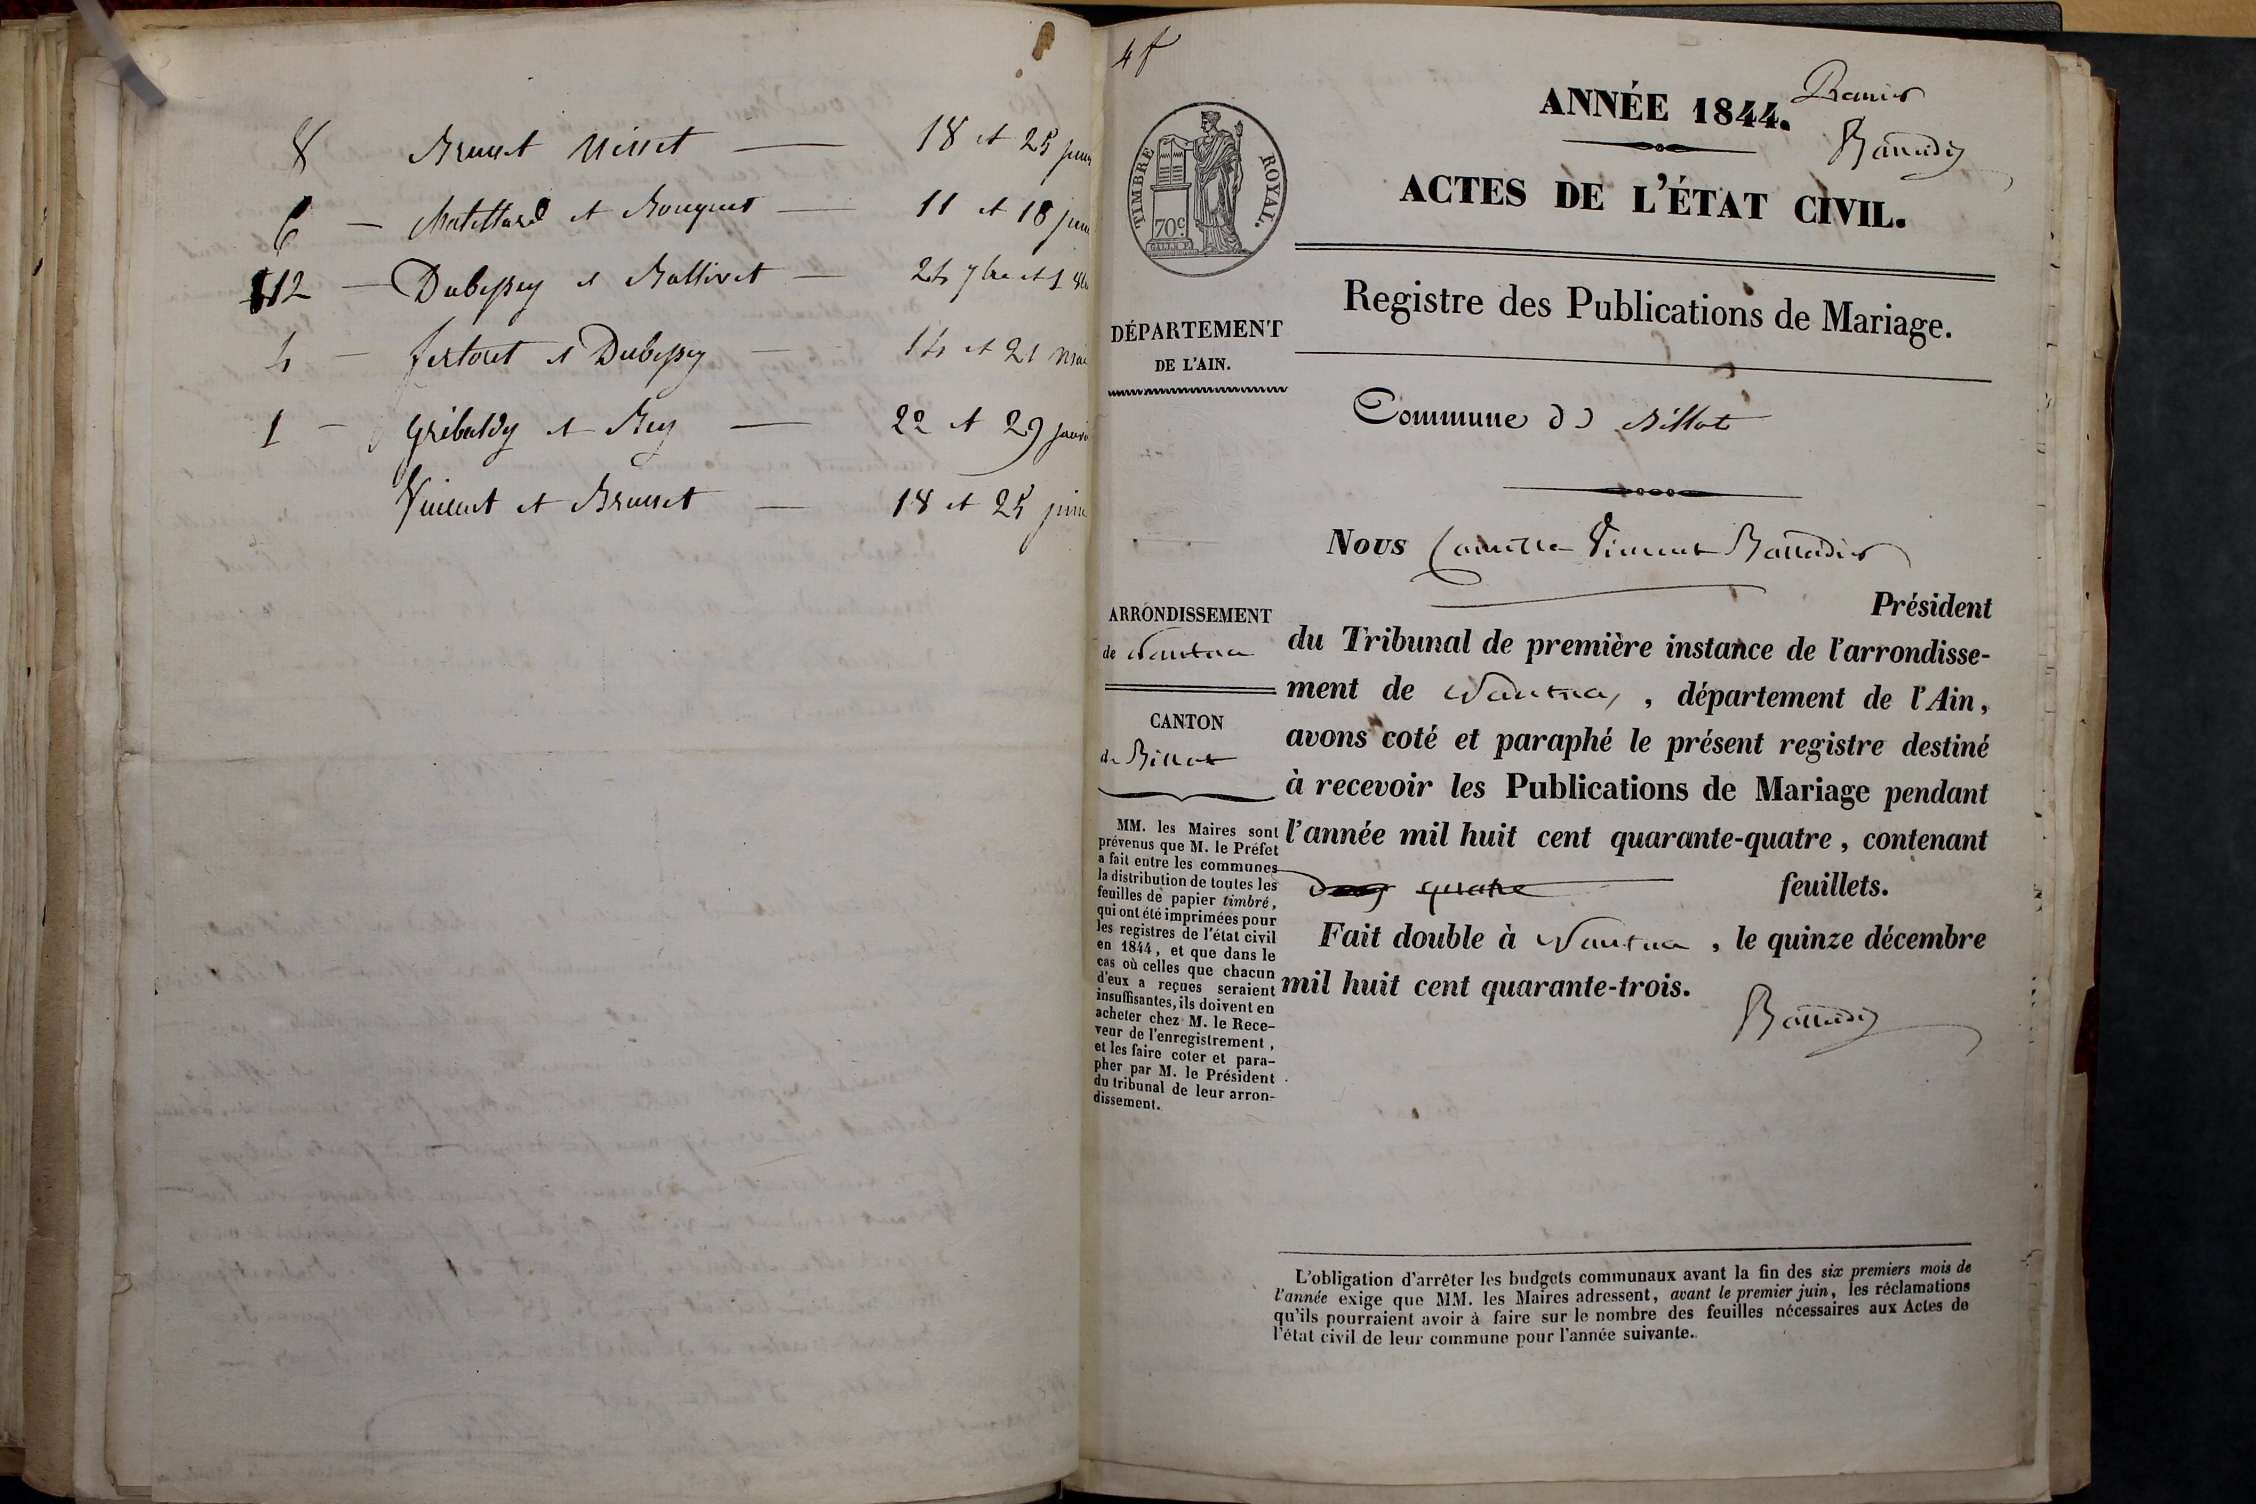 8 Brunet Misset — 18 et 25 juin
6 — Matillard et Bouquet — 11 et 18 juin
12 — Dubeyssey et Ballivet — 24 7bre et 1 8b
4 — fertoret et Dubeyssey — 14 et 21 mai
1 — Gribaldy et Rey — 22 et 29 janvi
Vincent et Brunet — 18 et 25 juin
4 f
TIMBRE ROYAL.
70 c.
ANNÉE 1844.
Premier
ACTES DE L'ÉTAT CIVIL.
Registre des Publications de Mariage.
DÉPARTEMENT
DE L'AIN.
Commune de Billiat
Nous Camille Vincent
Président
ARRONDISSEMENT
de Nantua
CANTON
de
du Tribunal de première instance de l'arrondisse-
ment de Nantua, département de l'Ain,
avons coté et paraphé le présent registre destiné
à recevoir les Publications de Mariage pendant
l'année mil huit cent quarante-quatre, contenant
quatre feuillets.
Fait double à Nantua, le quinze décembre
mil huit cent quarante-trois.
MM. les Maires sont
prévenus que M. le Préfet
a fait entre les communes
la distribution de toutes les
feuilles de papier timbré,
qui ont été imprimées pour
les registres de l'état civil
en 1844, et que dans le
cas où celles que chacun
d'eux a reçues seraient
insuffisantes, ils doivent en
acheter chez M. le Rece-
veur de l'enregistrement,
et les faire coter et para-
pher par M. le Président
du tribunal de leur arron-
dissement.
L'obligation d'arrêter les budgets communaux avant la fin des six premiers mois de
l'année exige que MM. les Maires adressent, avant le premier juin, les réclamations
qu'ils pourraient avoir à faire sur le nombre des feuilles nécessaires aux Actes de
l'état civil de leur commune pour l'année suivante.